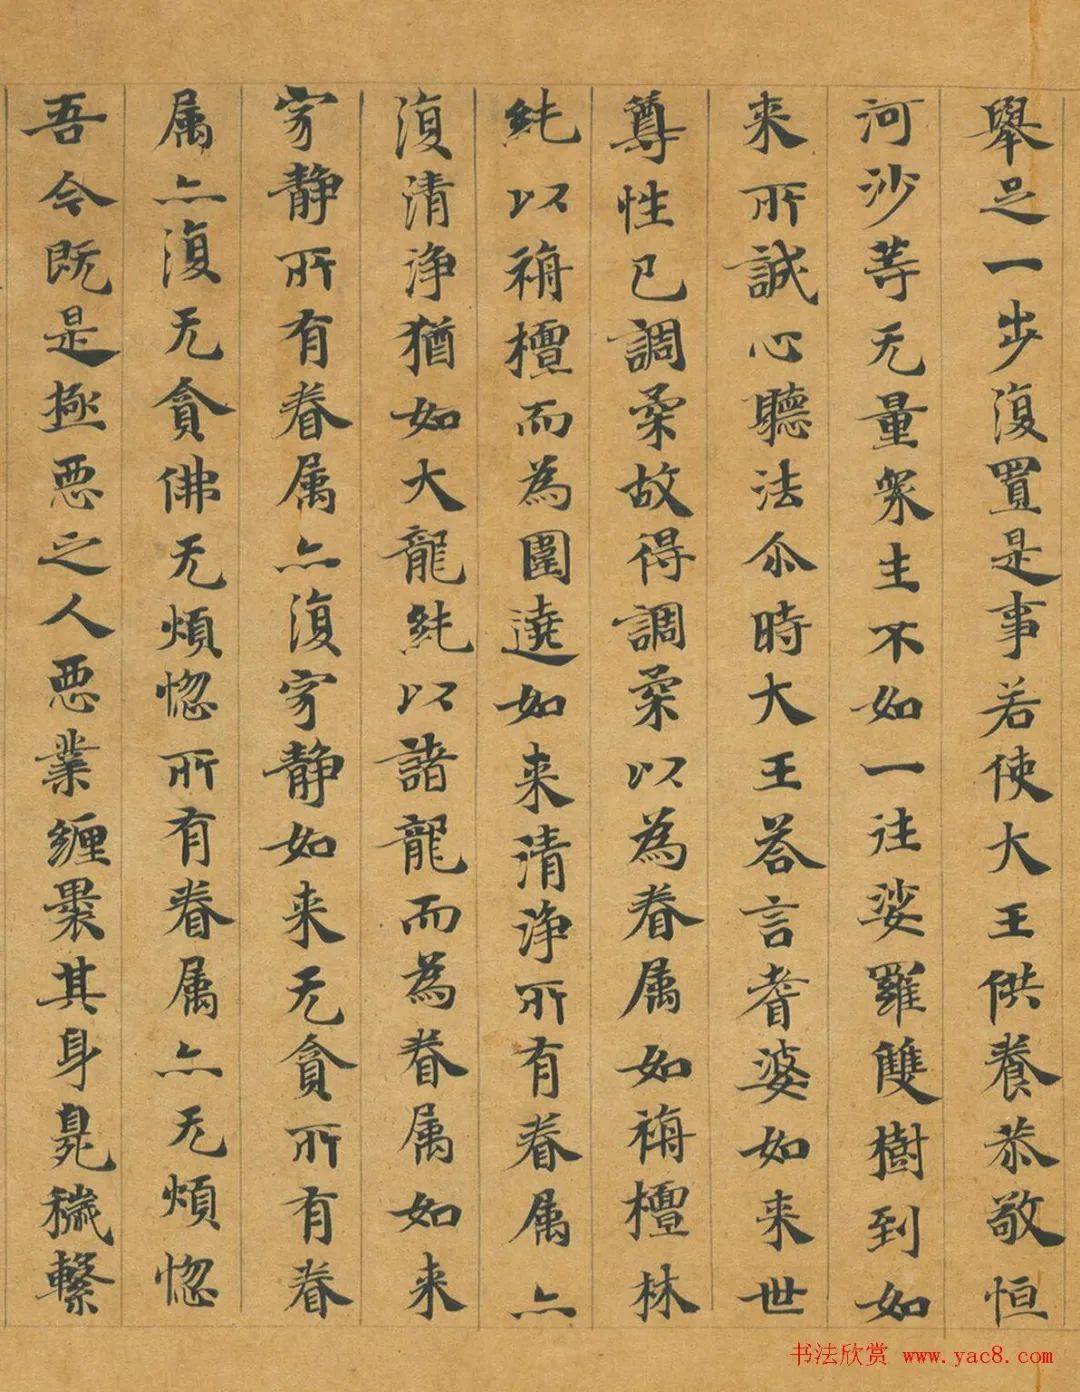 舉足一步復置是事若使大王供養恭敬恒
河沙等无量衆生不如一往娑羅雙樹到如
来所誠心聽法尒時大王荅言耆婆如来世
尊性已調柔故得調柔以為眷属如栴檀林
純以栴檀而為圍遶如来清淨所有眷属亦
復清淨猶如大龍純以諸龍而為眷属如来
㝛静所有眷属亦復㝛静如来无貪所有眷
属亦復无貪佛无煩惚所有眷属亦无煩惚
吾今既是極惡之人惡業纏褁其身臰穢繫
书法欣赏 www.yac8.com